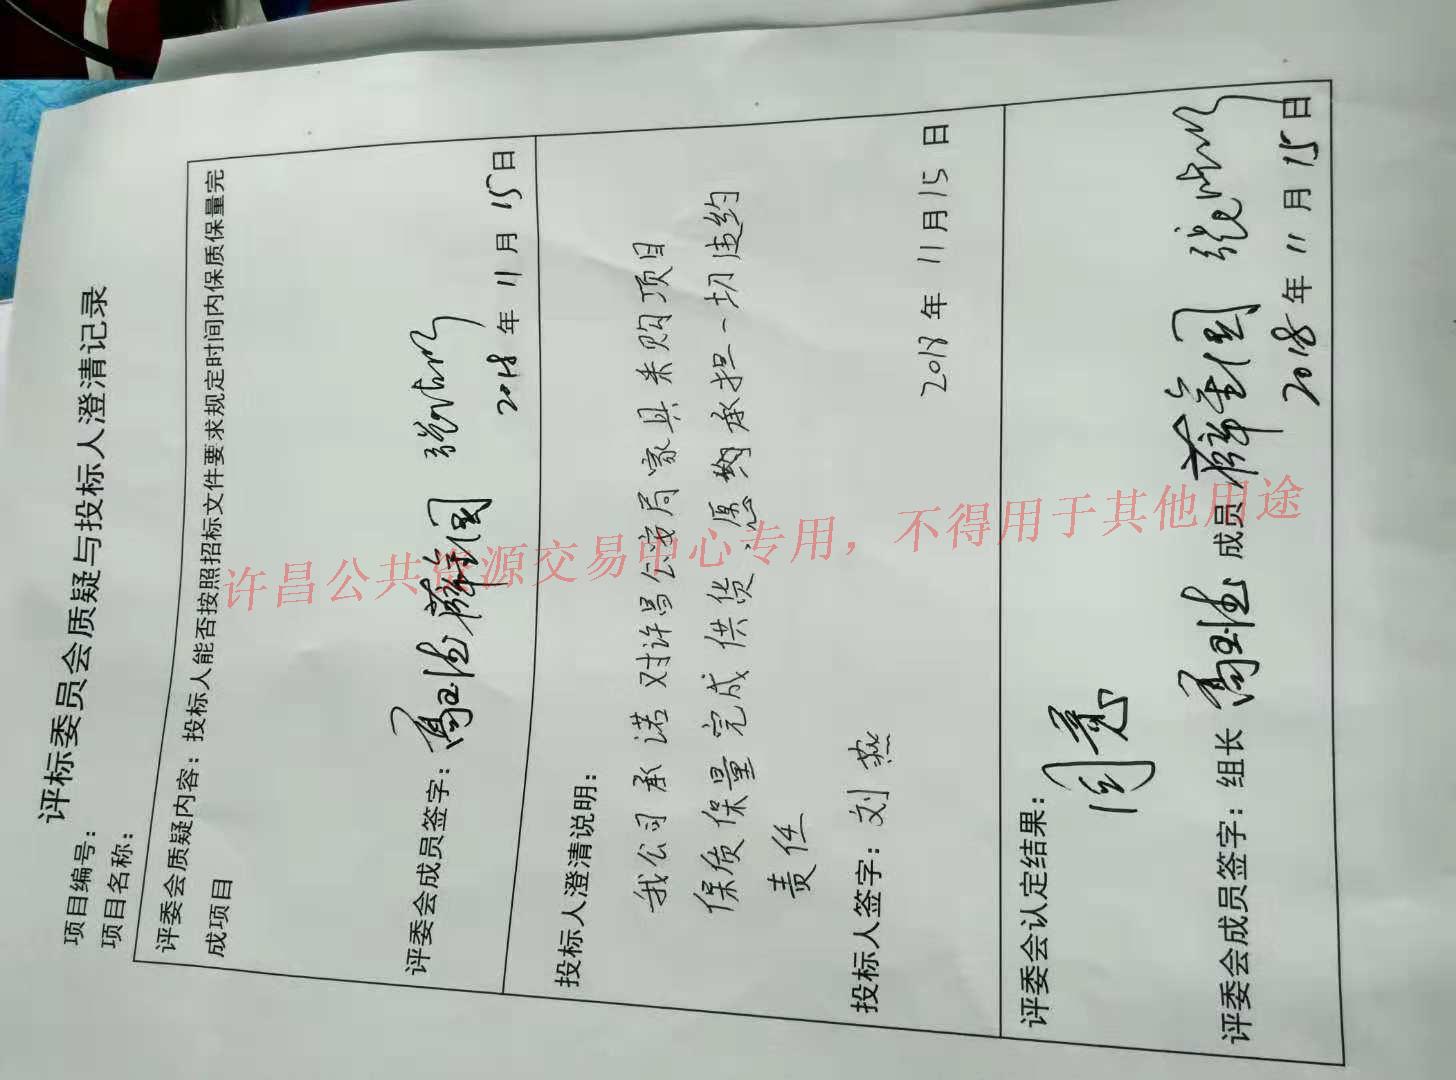 评标委员会质疑与投标人澄清记录
项目编号：
项目名称：
评委会质疑内容：投标人能否按照招标文件要求规定时间内保质保量完
成项目
评委会成员签字：
2018年11月15日
投标人澄清说明：
我公司承诺对许昌公演局家具采购项目
保质保量完成供货，愿承担一切违约
责任
投标人签字：刘燕
2018年11月15日
评委会认定结果：
同意
评委会成员签字：组长 成员
2018年11月15日
许昌公共资源交易中心专用，不得用于其他用途